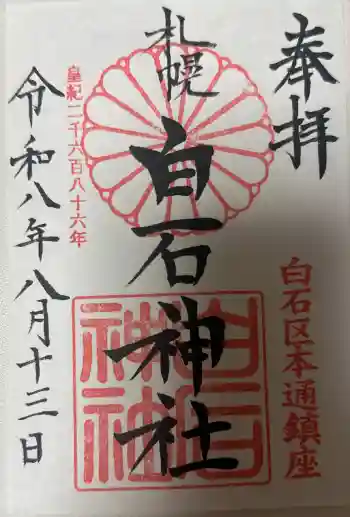 奉拝
白石区本通鎮座
札幌
白石神社
白石神社
皇紀二千六百八十六年
令和八年八月十三日